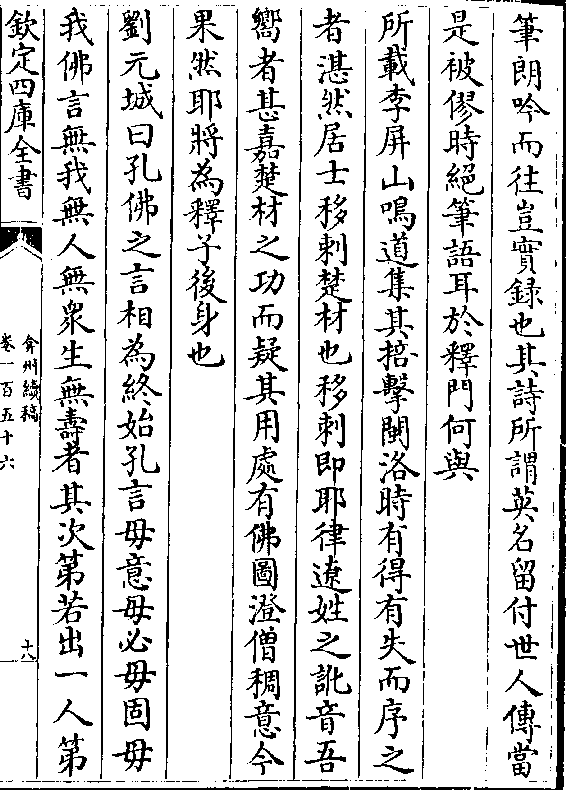 筆朗吟而往豈實録也其詩所謂英名留付世人傳當
是被僇時絕筆語耳於釋門何與
所載李屏山鳴道集其掊擊閩洛時有得有失而序之
者湛然居士移剌楚材也移剌即耶律遼姓之訛音吾
嚮者甚嘉楚材之功而疑其用處有佛圖澄僧稠意今
果然耶將為釋子後身也
劉元城曰孔佛之言相為終始孔言毋意毋必毋固毋
我佛言無我無人無衆生無壽者其次第若出一人第
欽定四庫全書
弇州續稿
卷一百五十六
十八